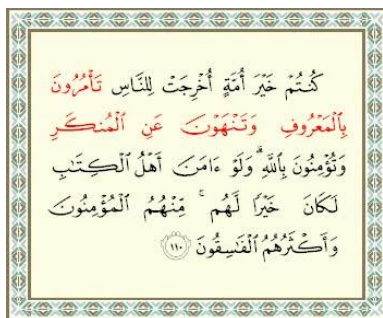 كُنتُمْ خَيْرَ أُمَّةٍ أُخْرِجَتْ لِلنَّاسِ تَأْمُرُونَ
بِٱلْمَعْرُوفِ وَتَنْهَوْنَ عَنِ ٱلْمُنكَرِ
وَتُؤْمِنُونَ بِٱللَّهِ ۗ وَلَوْ ءَامَنَ أَهْلُ ٱلْكِتَٰبِ
لَكَانَ خَيْرًا لَّهُم ۚ مِّنْهُمُ ٱلْمُؤْمِنُونَ
وَأَكْثَرُهُمُ ٱلْفَٰسِقُونَ ١١٠